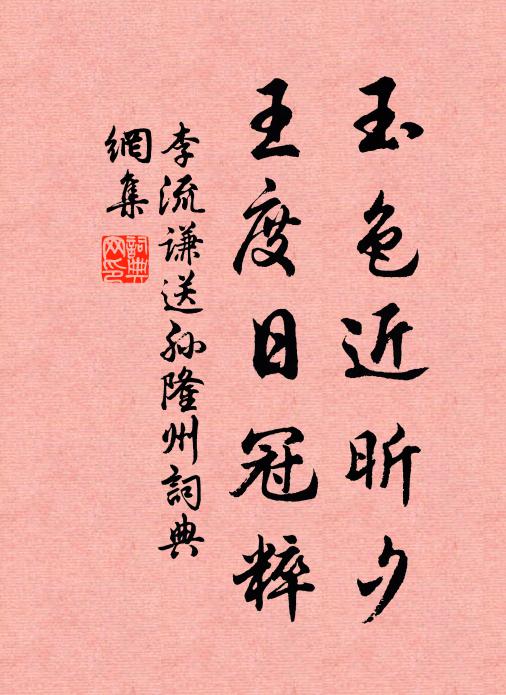 玉色近昕夕
王度日冠粹
李流谦送孙隆州詞典
網集
詞典
网印